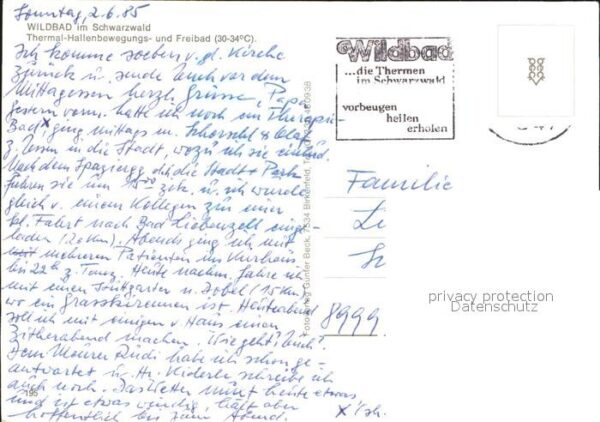 Sonntag, 2.6.85
WILDBAD im Schwarzwald
Thermal-Hallenbewegungs- und Freibad (30-34°C).
Ich komme soeben v. d. Kirche
zurück u. sende Euch vor dem
Mittagessen herzl. Grüsse, Papa
gestern vorm. hatte ich noch ein Therapie-
Bad x ging mittags m.
z. Essen in die Stadt, wozu ich sie einlud.
Nach dem Spazierg. dch die Stadt + Park
fuhren sie um 15 zck. u. ich wurde
gleich v. einem Kollegen zu einer
Fahrt nach Bad Liebenzell einge-
laden (20 km). Abends ging ich mit
mehreren Patienten ins Kurhaus
bis 22 h z. Tanz. Heute nachm. fahre ich
mit einem Stuttgarter n. Dobel (15 km),
wo ein Grasskirennen ist. Heuteabend
soll ich mit einigen v Haus einen
Zitherabend machen. Wie geht's Euch?
Dem Rudi habe ich schon ge-
antwortet u. Hr. schreibe ich
auch noch. Das Wetter heute etwas
und ist etwas windig, hält aber
hoffentlich bis zum Abend.
x Ich
195
Wildbad
...die Thermen
im Schwarzwald
vorbeugen
heilen
erholen
Familie
Li
8999
privacy protection
Datenschutz